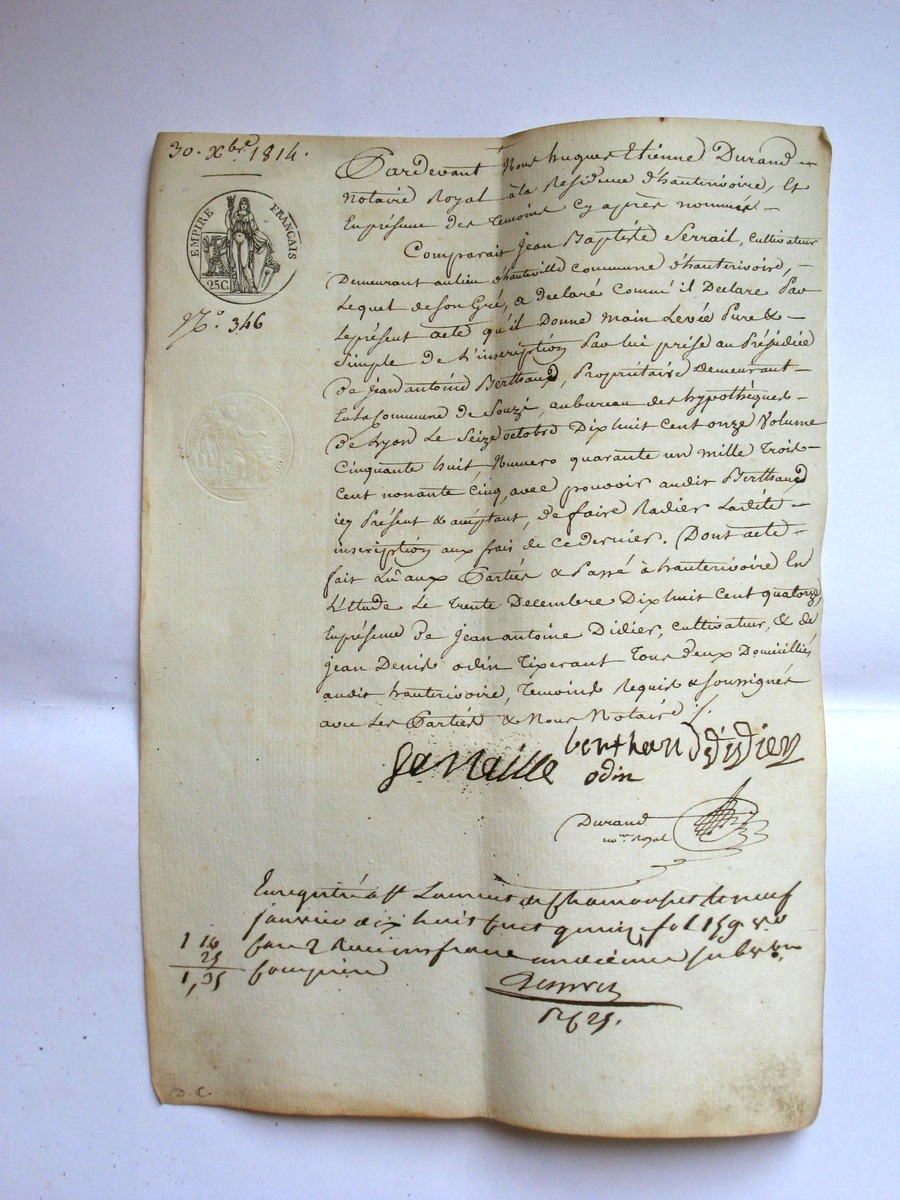 30. Xbre 1814.
EMPIRE FRANÇAIS
25 C.
No. 346
Pardevant Nous hugues Etienne Durand
notaire Royal à la Residence d'hauterivoire, Et
En présence des temoins cy après nommés —
Comparait Jean Baptiste Serrail, cultivateur
Demeurant au lieu d'hauteville commune d'hauterivoire, —
Lequel de son Gré, a declaré comme il Declare Par
Le présent acte qu'il Donne main Levée Pure & —
simple de L'inscription Par lui prise au Préjudice
de Jean antoine Berthaud, Propriétaire Demeurant —
En la Commune de Souzi, au bureau des hypothèques —
de Lyon Le Seize octobre Dix huit cent onze Volume
Cinquante huit, Numero quarante un mille trois —
Cent nonante cinq, avec pouvoir audit Berthaud
icy Présent & acceptant, de faire Radier Ladite —
inscription aux frais de ce dernier. Dont acte —
fait Lû aux Parties & Passé à hauterivoire En
L'Etude Le trente Decembre Dix huit Cent quatorze,
En présence de Jean antoine Didier, cultivateur, & de
jean Denis odin tixerant tous deux Domiciliés
audit hauterivoire, temoins Requis & soussignés
avec Les Parties & Nous Notaire ./.
berthaud didier
odin
Durand
nore Royal
Enregistré à St Laurent de Chamousset le neuf
janvier dix huit cent quinze fol 159 vo
1 10
25
1,35
D. C.